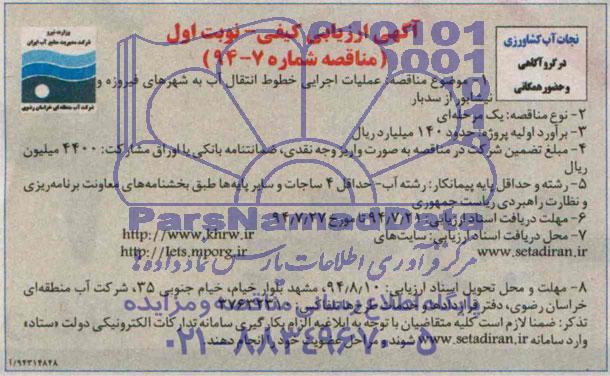 وزارت نیرو
شرکت مدیریت منابع آب ایران
شرکت آب منطقه‌ای خراسان رضوی
نجات آب کشاورزی
در گرو آگاهی
و حضور همگانی
آگهی ارزیابی کیفی - نوبت اول
(مناقصه شماره ۷-۹۴)
۱- موضوع مناقصه: عملیات اجرایی خطوط انتقال آب به شهرهای فیروزه و
نیشابور از سد بار
۲- نوع مناقصه: یک مرحله‌ای
۳- برآورد اولیه پروژه: حدود ۱۴۰ میلیارد ریال
۴- مبلغ تضمین شرکت در مناقصه به صورت واریز وجه نقدی، ضمانتنامه بانکی یا اوراق مشارکت: ۴۴۰۰ میلیون
ریال
۵- رشته و حداقل پایه پیمانکار: رشته آب- حداقل ۴ ساجات و سایر پایه‌ها طبق بخشنامه‌های معاونت برنامه‌ریزی
و نظارت راهبردی ریاست جمهوری
۶- مهلت دریافت اسناد ارزیابی: ۹۴/۷/۲۱ تا مورخ ۹۴/۷/۲۷
۷- محل دریافت اسناد ارزیابی: سایت‌های http://www.khrw.ir
www.setadiran.ir http://iets.mporg.ir
۸- مهلت و محل تحویل اسناد ارزیابی: ۹۴/۸/۱۰، مشهد بلوار خیام، خیام جنوبی ۳۵، شرکت آب منطقه‌ای
خراسان رضوی، دفتر قراردادها و خدمات طرح‌ها تلفاکس:
تذکر: ضمنا لازم است کلیه متقاضیان با توجه به ابلاغیه الزام بکارگیری سامانه تدارکات الکترونیکی دولت «ستاد»
وارد سامانه www.setadiran.ir شوند و مراحل عضویت خود را انجام دهند.
۹۴۳۱۴۸۴۸/آ
ParsNamadData
مرکز فرآوری اطلاعات پارس نماد داده‌ها
پایگاه اطلاع رسانی مناقصه و مزایده
۰۲۱-۸۸۳۴۹۶۷۰-۵